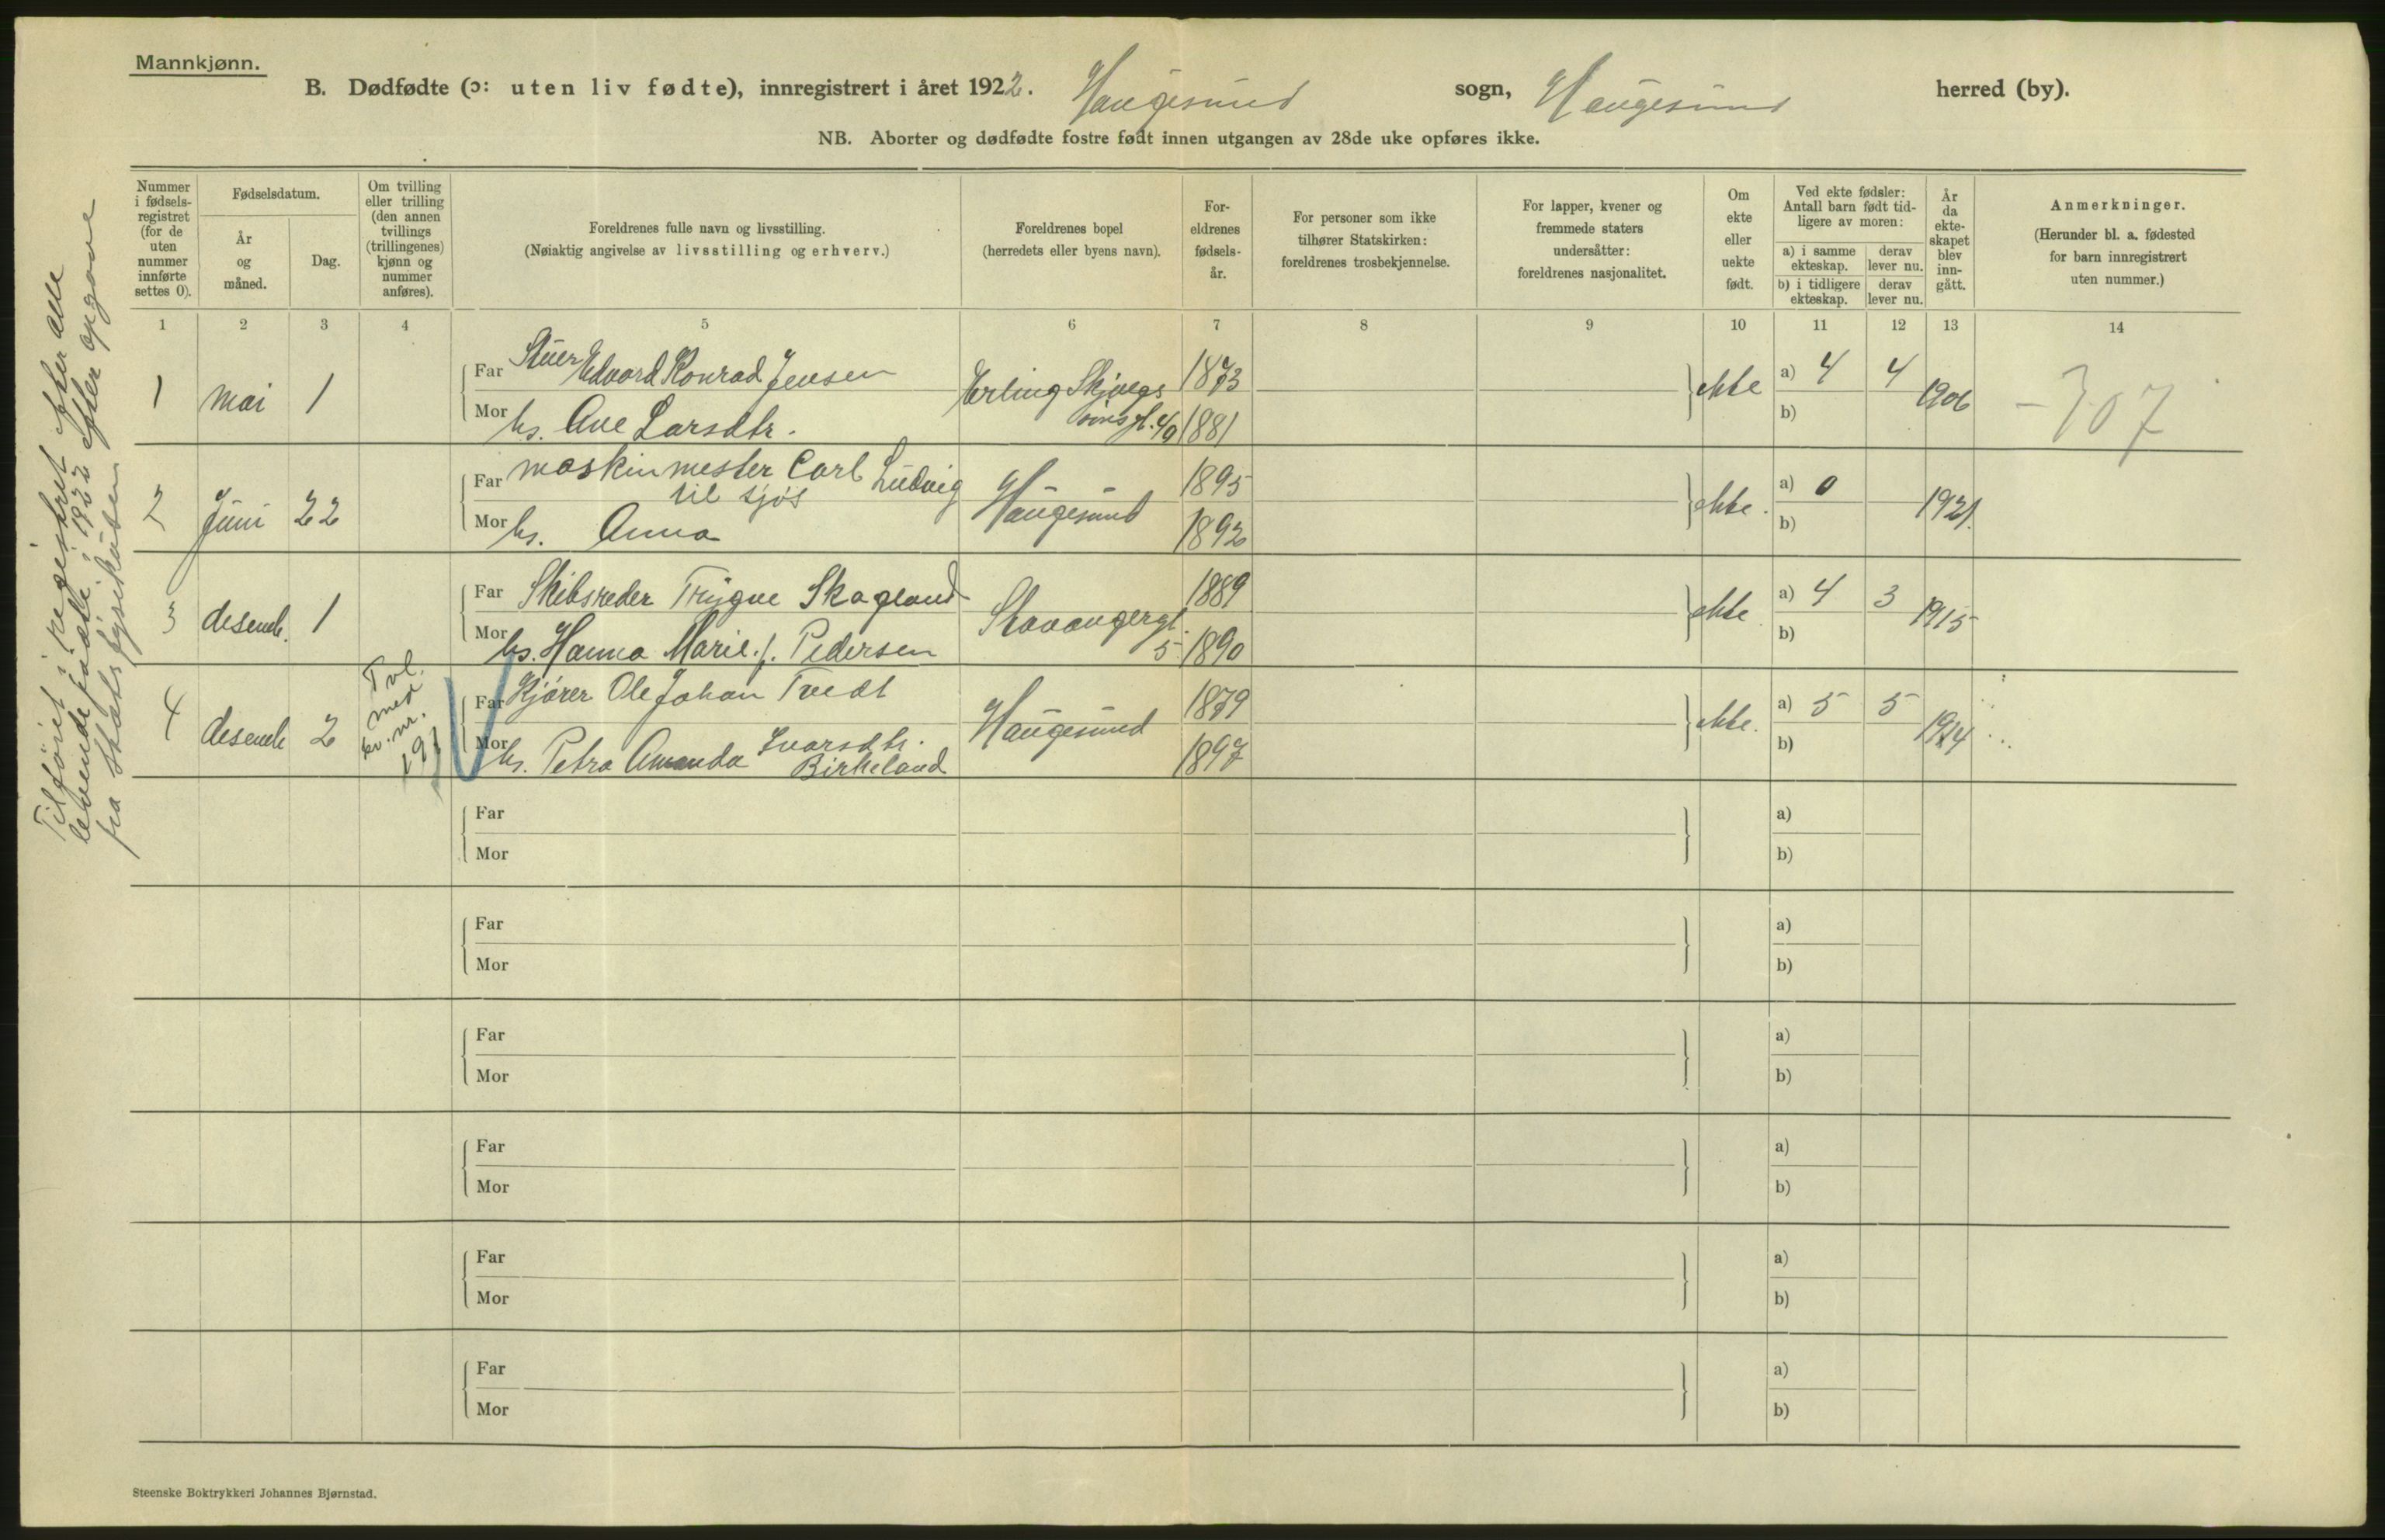 Mannkjønn.
B. Dødfødte (ɔ: uten liv fødte), innregistrert i året 1922. Haugesund sogn, Haugesund herred (by).
NB. Aborter og dødfødte fostre født innen utgangen av 28de uke opføres ikke.
Nummer i fødselsregistret (for de uten nummer innførte settes 0).
Fødselsdatum.
År og måned.
Dag.
Om tvilling eller trilling (den annen tvillings (trillingenes) kjønn og nummer anføres).
Foreldrenes fulle navn og livsstilling.
(Nøiaktig angivelse av livsstilling og erhverv.)
Foreldrenes bopel
(herredets eller byens navn).
Foreldrenes fødselsår.
For personer som ikke tilhører Statskirken: foreldrenes trosbekjennelse.
For lapper, kvener og fremmede staters undersåtter: foreldrenes nasjonalitet.
Om ekte eller uekte født.
Ved ekte fødsler: Antall barn født tidligere av moren:
a) i samme ekteskap. derav lever nu.
b) i tidligere ekteskap. derav lever nu.
År da ekteskapet blev inngått.
Anmerkninger.
(Herunder bl. a. fødested for barn innregistrert uten nummer.)
1 2 3 4 5 6 7 8 9 10 11 12 13 14
Far Stuer Edvard Konrad Jensen 1873 a) 4 4
1 mai 1 Erling Skjalgssons gt. 49 ekte 1906 -307
Mor hs. Ane Larsdtr. 1881 b)
Far maskinmester Carl Ludvig 1895 a) 0
til sjøs
2 Juni 22 Haugesund ekte. 1921.
Mor hs. Anna 1892 b)
Far Skibsreder Trygve Skogland 1889 a) 4 3
3 desemb. 1 Stavangergt. 5 ekte 1915
Mor hs. Hanna Marie f. Pedersen 1890 b)
Far Kjører Ole Johan Tvedt 1879 a) 5 5
4 desemb 2 Tvl. med kv. nr. 191 Haugesund ekte. 1914
Mor hs. Petra Amanda Ivarsdtr. Birkeland 1897 b)
Far a)
Mor b)
Far a)
Mor b)
Far a)
Mor b)
Far a)
Mor b)
Far a)
Mor b)
Far a)
Mor b)
Tilføiet i registret efter alle
levende fødte i 1922 efter opgave
fra Stadsfysikaten
Steenske Boktrykkeri Johannes Bjørnstad.